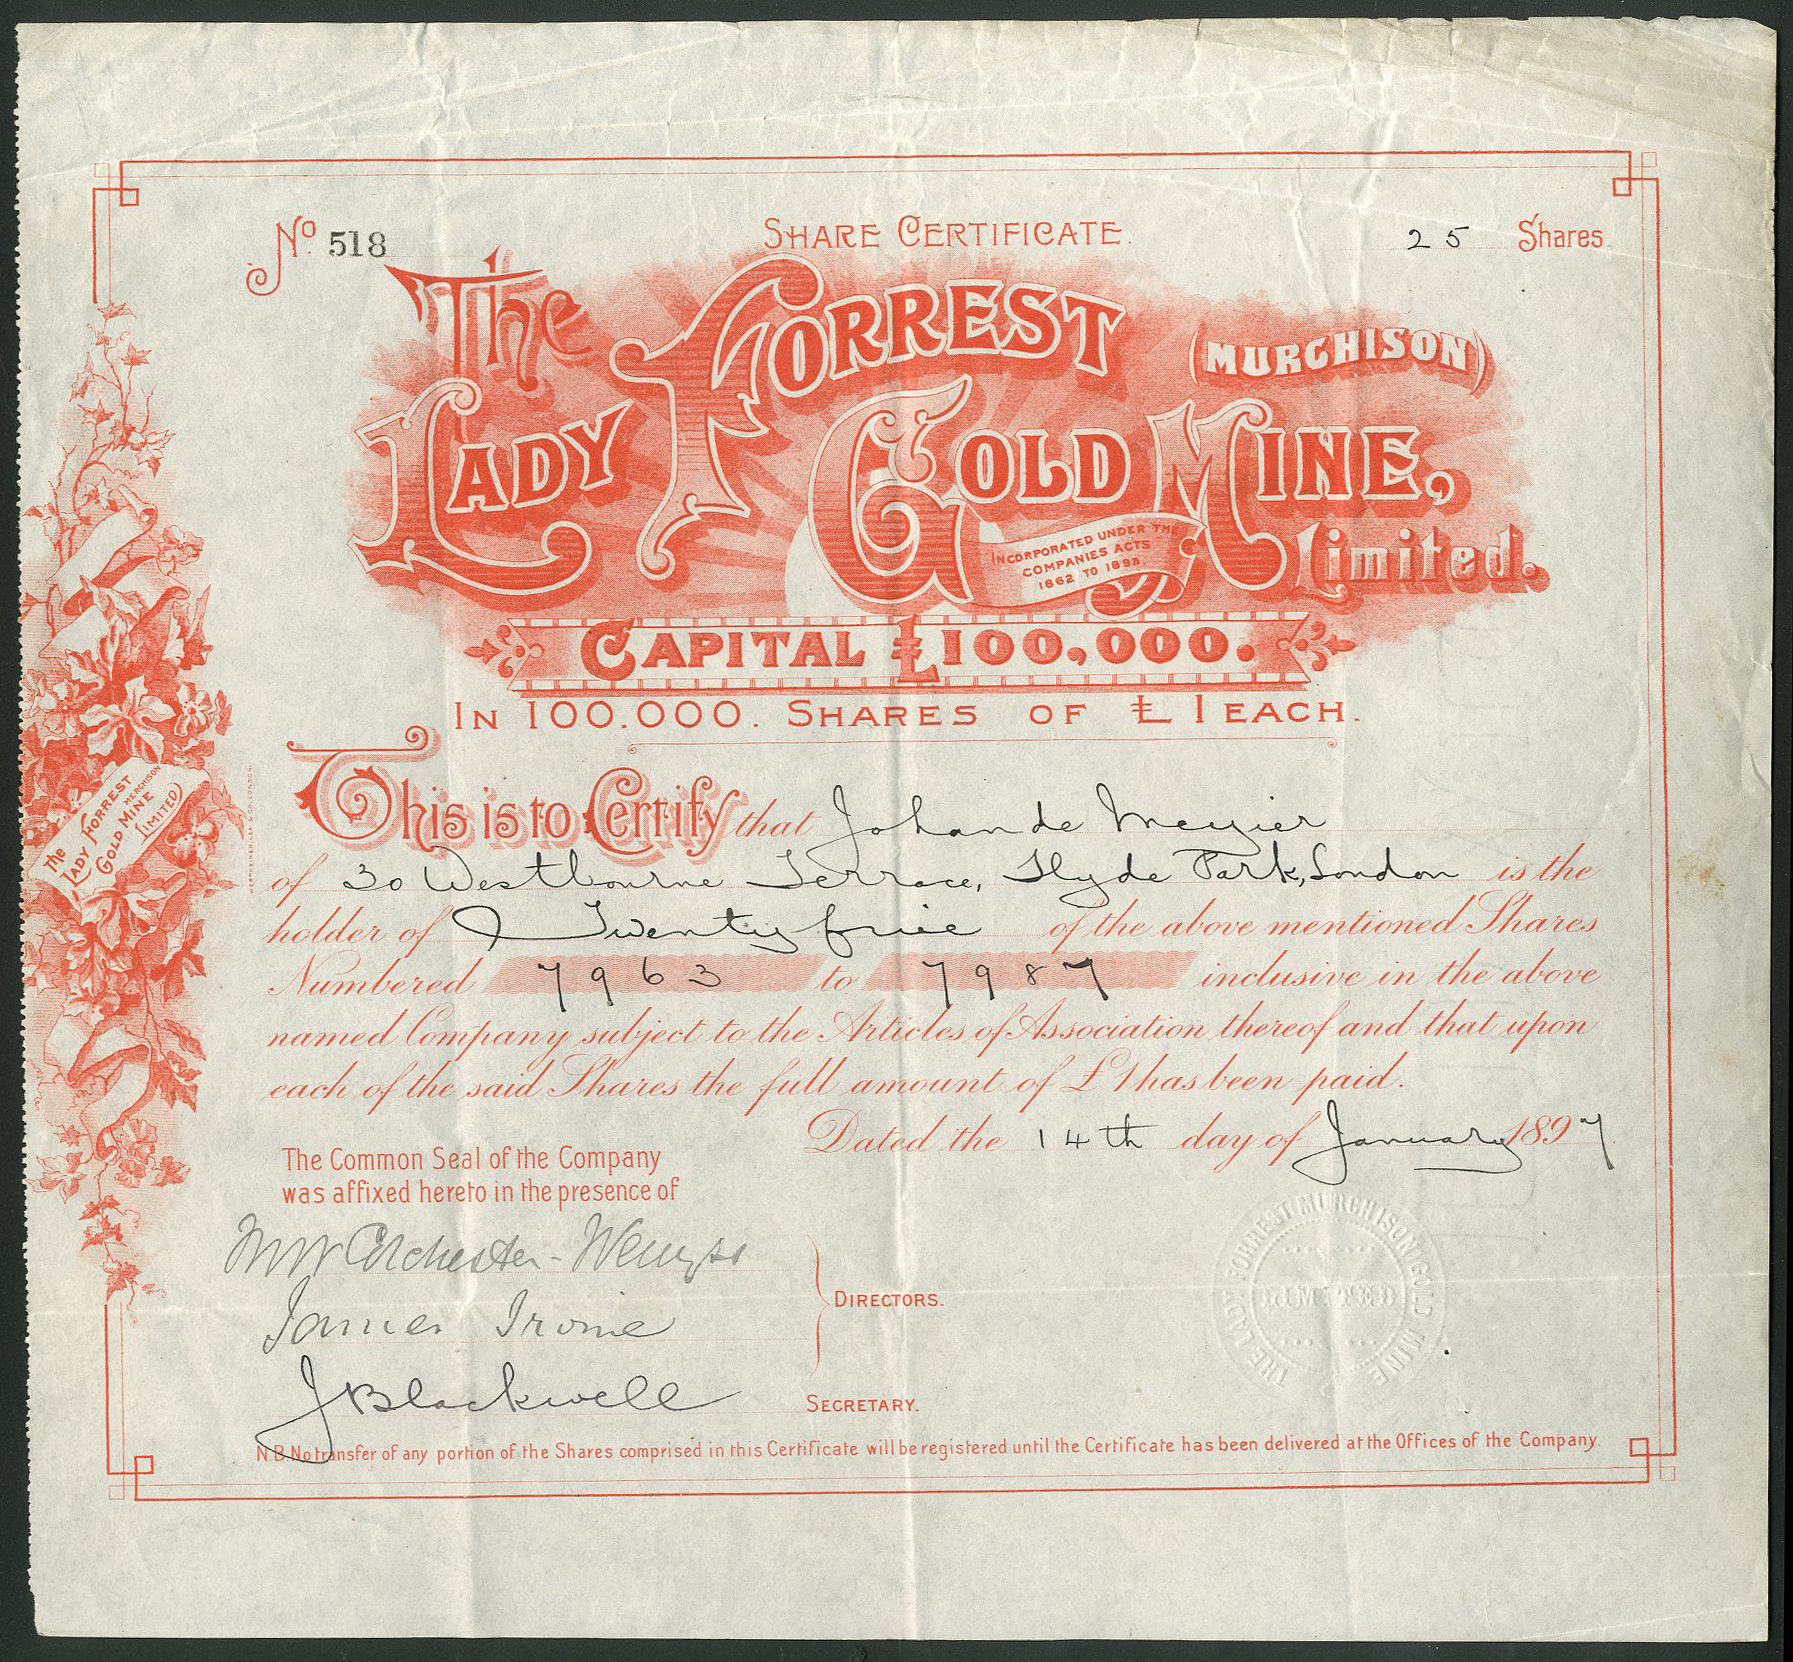 No. 518
SHARE CERTIFICATE.
25 Shares
The
LADY FORREST
(MURCHISON)
GOLD MINE,
Limited.
INCORPORATED UNDER THE
COMPANIES ACTS
1862 TO 1893.
CAPITAL £100,000.
IN 100.000. SHARES OF £1 EACH.
This is to Certify that Johan de Meyier
of 30 Westbourne Terrace, Hyde Park, London is the
holder of Twenty five of the above mentioned Shares
Numbered 7963 to 7987 inclusive in the above
named Company subject to the Articles of Association thereof and that upon
each of the said Shares the full amount of £1 has been paid.
Dated the 14th day of January 1897
The Common Seal of the Company
was affixed hereto in the presence of
Colchester-Wemyss
James Irvine
DIRECTORS.
J Blackwell
SECRETARY.
N.B. No transfer of any portion of the Shares comprised in this Certificate will be registered until the Certificate has been delivered at the Offices of the Company.
The
LADY FORREST
MURCHISON
GOLD MINE
LIMITED)
THE LADY FORREST MURCHISON GOLD MINE
LIMITED